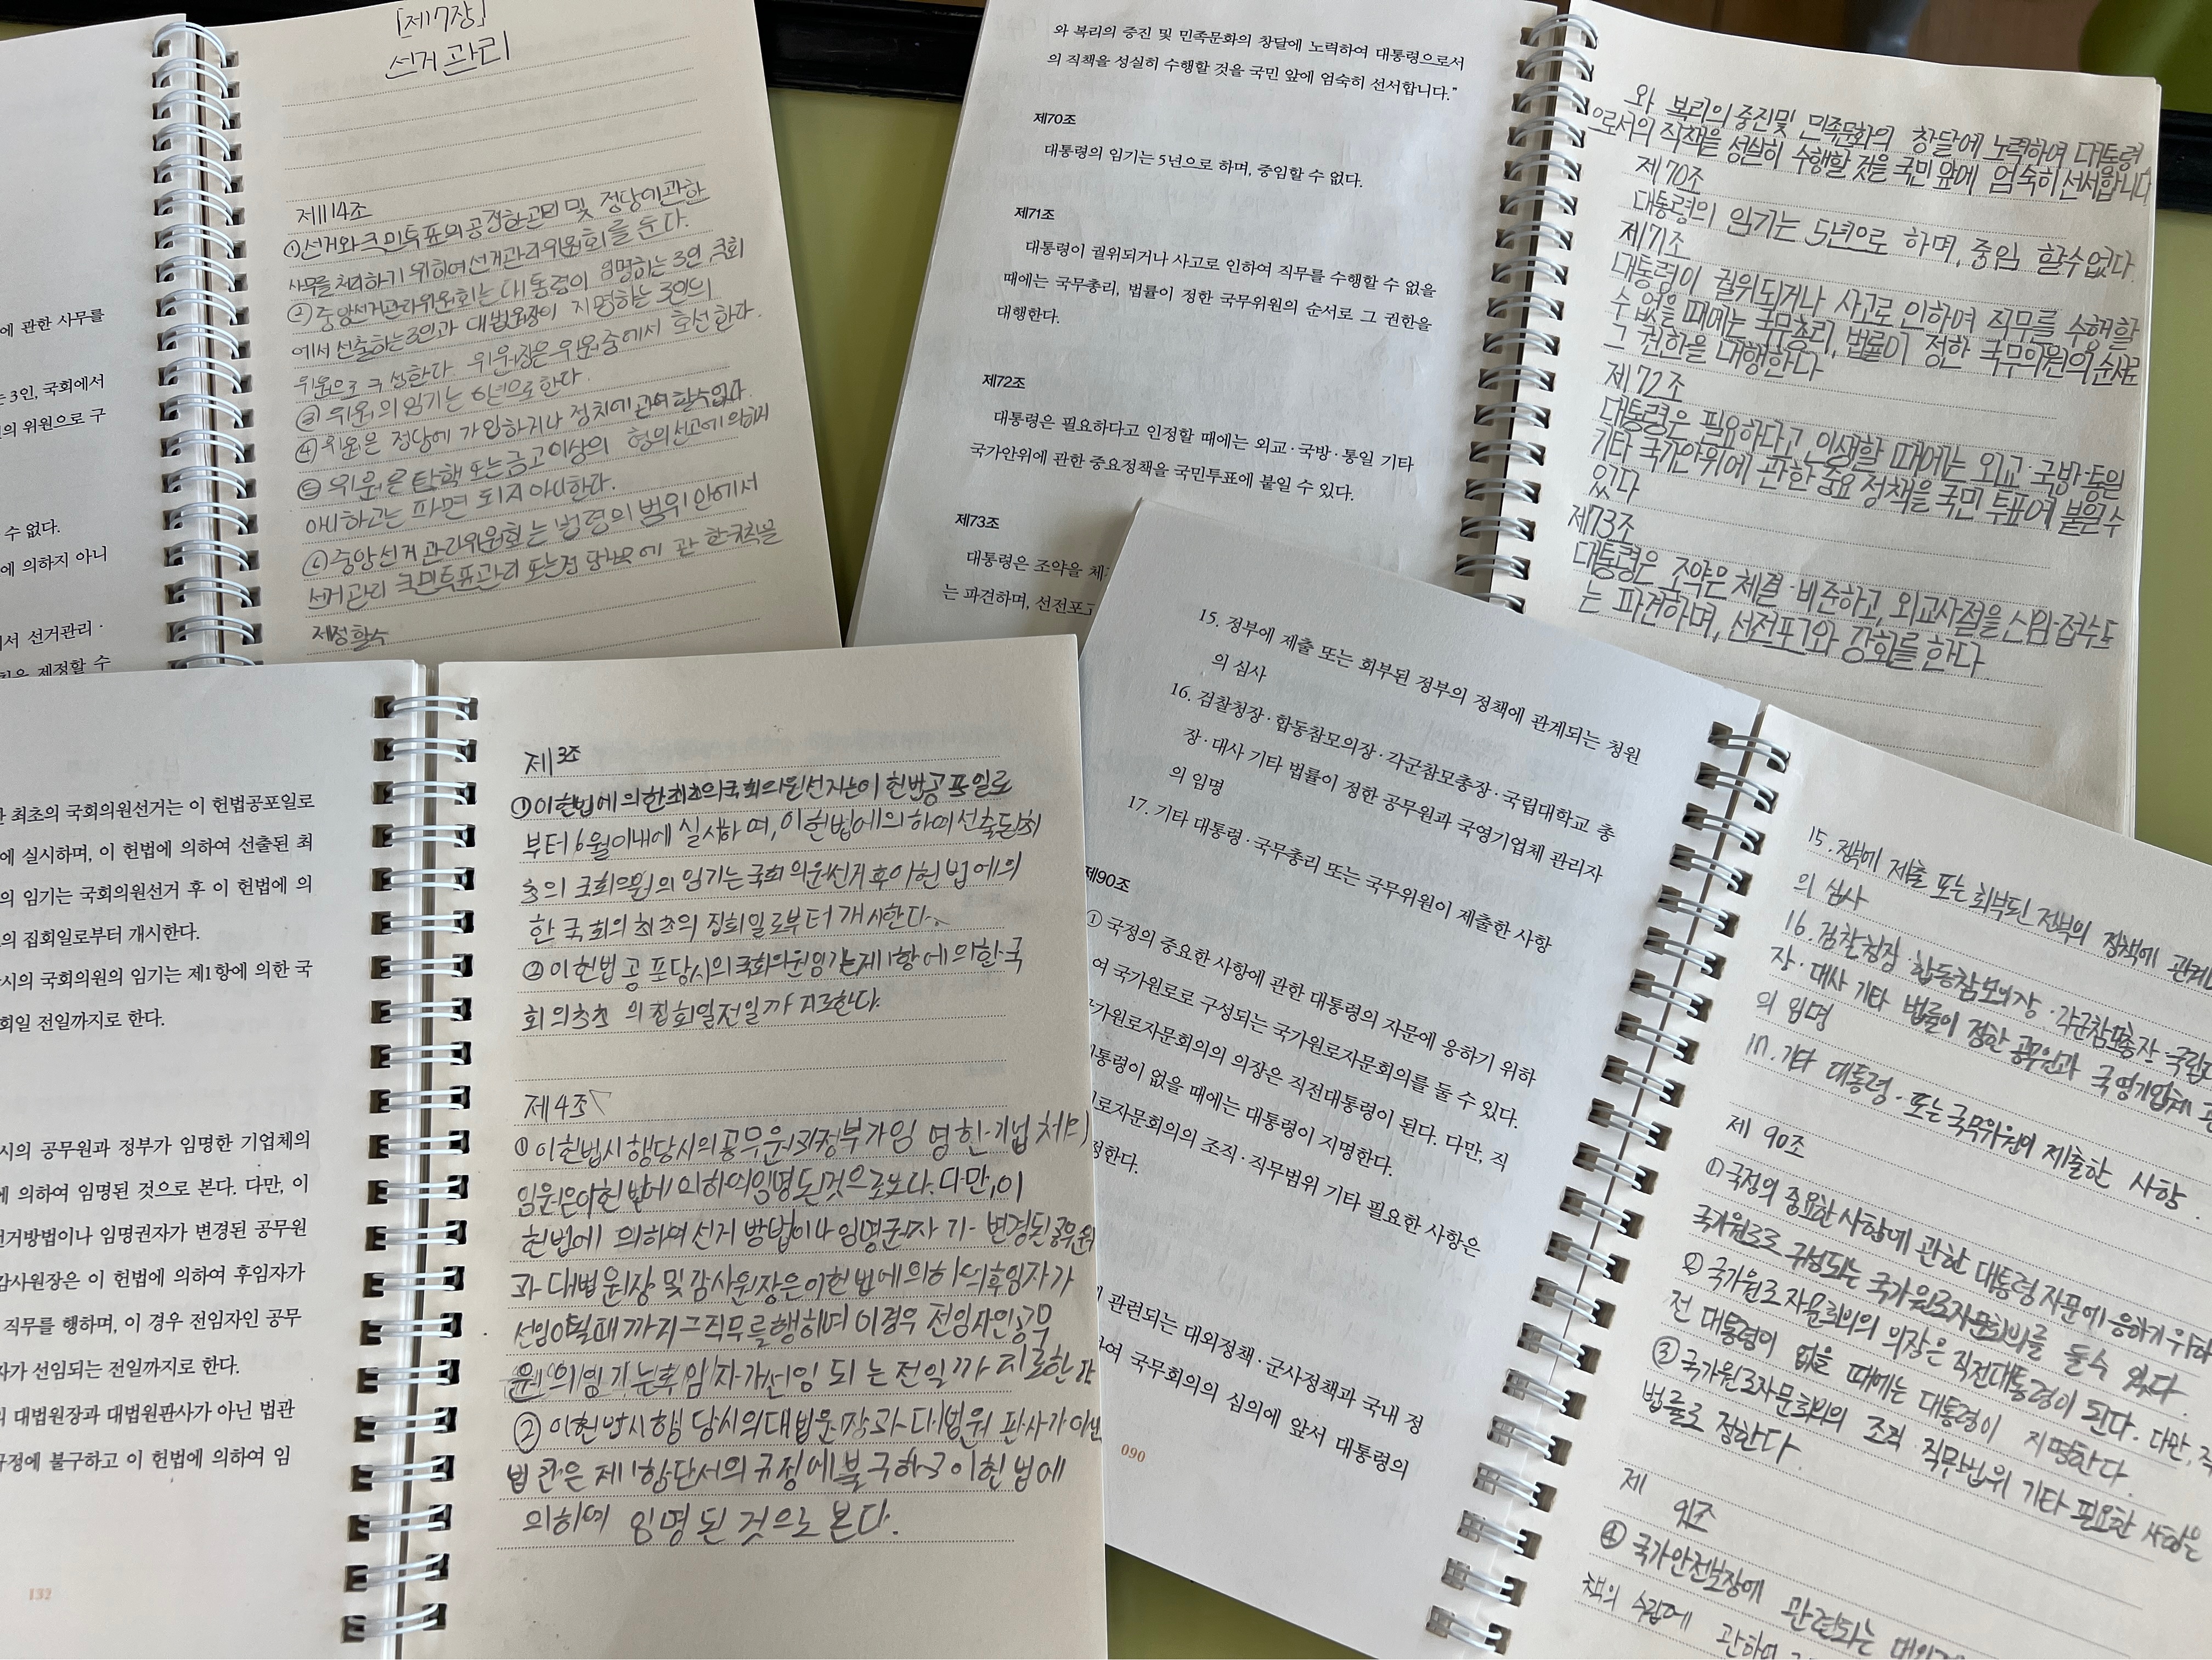 에 관한 사무를
는 3인, 국회에서
인의 위원으로 구
수 없다.
에 의하지 아니
에서 선거관리 ·
칙을 제정할 수
[제17장]
선거관리
제114조
①선거와국민투표의공정한관리및 정당에관한
사무를처리하기 위하여선거관리위원회를 둔다.
②중앙선거관리위원회는대통령이 임명하는3인 국회
에서선출하는3인과 대법원장이 지명하는3인의
위원으로 구성한다 위원장은위원중에서 호선한다.
③위원의임기는 6년으로한다.
④위원은 정당에가입하거나 정치에관여할수없다.
⑤위원은탄핵또는금고이상의 형의선고에의하지
아니하고는파면되지아니한다.
⑥중앙선거관리위원회는법령의범위안에서
선거관리 국민투표관리또는정당사무에관한규칙을
제정할수
와 복리의 증진 및 민족문화의 창달에 노력하여 대통령으로서
의 직책을 성실히 수행할 것을 국민 앞에 엄숙히 선서합니다.”
제70조
대통령의 임기는 5년으로 하며, 중임할 수 없다.
제71조
대통령이 궐위되거나 사고로 인하여 직무를 수행할 수 없을
때에는 국무총리, 법률이 정한 국무위원의 순서로 그 권한을
대행한다.
제72조
대통령은 필요하다고 인정할 때에는 외교·국방·통일 기타
국가안위에 관한 중요정책을 국민투표에 붙일 수 있다.
제73조
대통령은 조약을 체
는 파견하며, 선전포고
와 복리의 증진및 민족문화의 창달에 노력하여 대통령
으로서의 직책을 성실히 수행할 것을 국민 앞에 엄숙히선서합니다
제70조
대통령의 임기는 5년으로 하며, 중임 할수없다.
제71조
대통령이 궐위되거나 사고로 인하여 직무를 수행할
수 없을 때에는 국무총리, 법률이 정한 국무위원의순서로
그 권한을 대행한다
제72조
대통령은 필요하다고 인생할 때에는 외교·국방·통일
기타 국가안위에 관한 중요 정책을 국민 투표에 붙일수
있다
제73조
대통령은 조약은 체결·비준하고, 외교사절을 신임·접수또
는 파견하며, 선전포고와 강화를 한다
한 최초의 국회의원선거는 이 헌법공포일로
에 실시하며, 이 헌법에 의하여 선출된 최
의 임기는 국회의원선거 후 이 헌법에 의
의 집회일로부터 개시한다.
당시의 국회의원의 임기는 제1항에 의한 국
회일 전일까지로 한다.
시의 공무원과 정부가 임명한 기업체의
에 의하여 임명된 것으로 본다. 다만, 이
선거방법이나 임명권자가 변경된 공무원
감사원장은 이 헌법에 의하여 후임자가
직무를 행하며, 이 경우 전임자인 공무
자가 선임되는 전일까지로 한다.
의 대법원장과 대법원판사가 아닌 법관
규정에 불구하고 이 헌법에 의하여 임
132
제3조
①이헌법에의한최초의국회의원선거는이 헌법공포일로
부터6월이내에 실시하며,이헌법에의하여선출된최
초의 국회의원의 임기는국회의원선거후이헌법에의
한 국회의최초의 집회일로부터 개시한다.
②이헌법공포당시의국회의원임기는제1항에의한국
회의최초 의집회일전일까지로한다.
제4조
①이헌법시행당시의공무원과정부가임명한기업체의
임원은이헌법에의하여임명된것으로본다.다만,이
헌법에 의하여선거방법이나임명권자가 변경된공무원
과대법원장및감사원장은이헌법에의하여후임자가
선임될때까지그직무를행하며이경우 전임자인공무
원의임기는후임자가선임되는전일까지로한다
②이헌법시행당시의대법원장과대법원 판사가아닌
법관은제1항단서의규정에불구하고이헌법에
의하여 임명된것으로본다.
15. 정부에 제출 또는 회부된 정부의 정책에 관계되는 청원
의 심사
16. 검찰청장·합동참모의장·각군참모총장·국립대학교 총
장·대사 기타 법률이 정한 공무원과 국영기업체 관리자
의 임명
17. 기타 대통령·국무총리 또는 국무위원이 제출한 사항
제90조
① 국정의 중요한 사항에 관한 대통령의 자문에 응하기 위하
여 국가원로로 구성되는 국가원로자문회의를 둘 수 있다.
가원로자문회의의 의장은 직전대통령이 된다. 다만, 직
대통령이 없을 때에는 대통령이 지명한다.
원로자문회의의 조직·직무범위 기타 필요한 사항은
정한다.
관련되는 대외정책·군사정책과 국내 정
하여 국무회의의 심의에 앞서 대통령의
090
15. 정부에 제출 또는 회부된 정부의 정책에 관계되
의 심사
16. 검찰청장 합동참모의장·각군참모총장 국립대
장·대사 기타 법률이 정한 공무원과 국영기업체
의 임명
17. 기타 대통령·또는국무위원의 제출한 사항.
제 90조
①국정의 중요한 사항에 관한 대통령 자문에 응하기위하
국가원로로 구성되는 국가원로자문회의를 둘수 있다
② 국가원로자문회의의 의장은직전대통령이 된다. 다만, 직
전 대통령이 없을 때에는 대통령이 지명한다.
③국가원로자문회의의 조직 직무범위 기타 필요한 사항은
법률로 정한다.
제
91조
① 국가안전보장에 관련되는 대외
책의 수립에 관하여